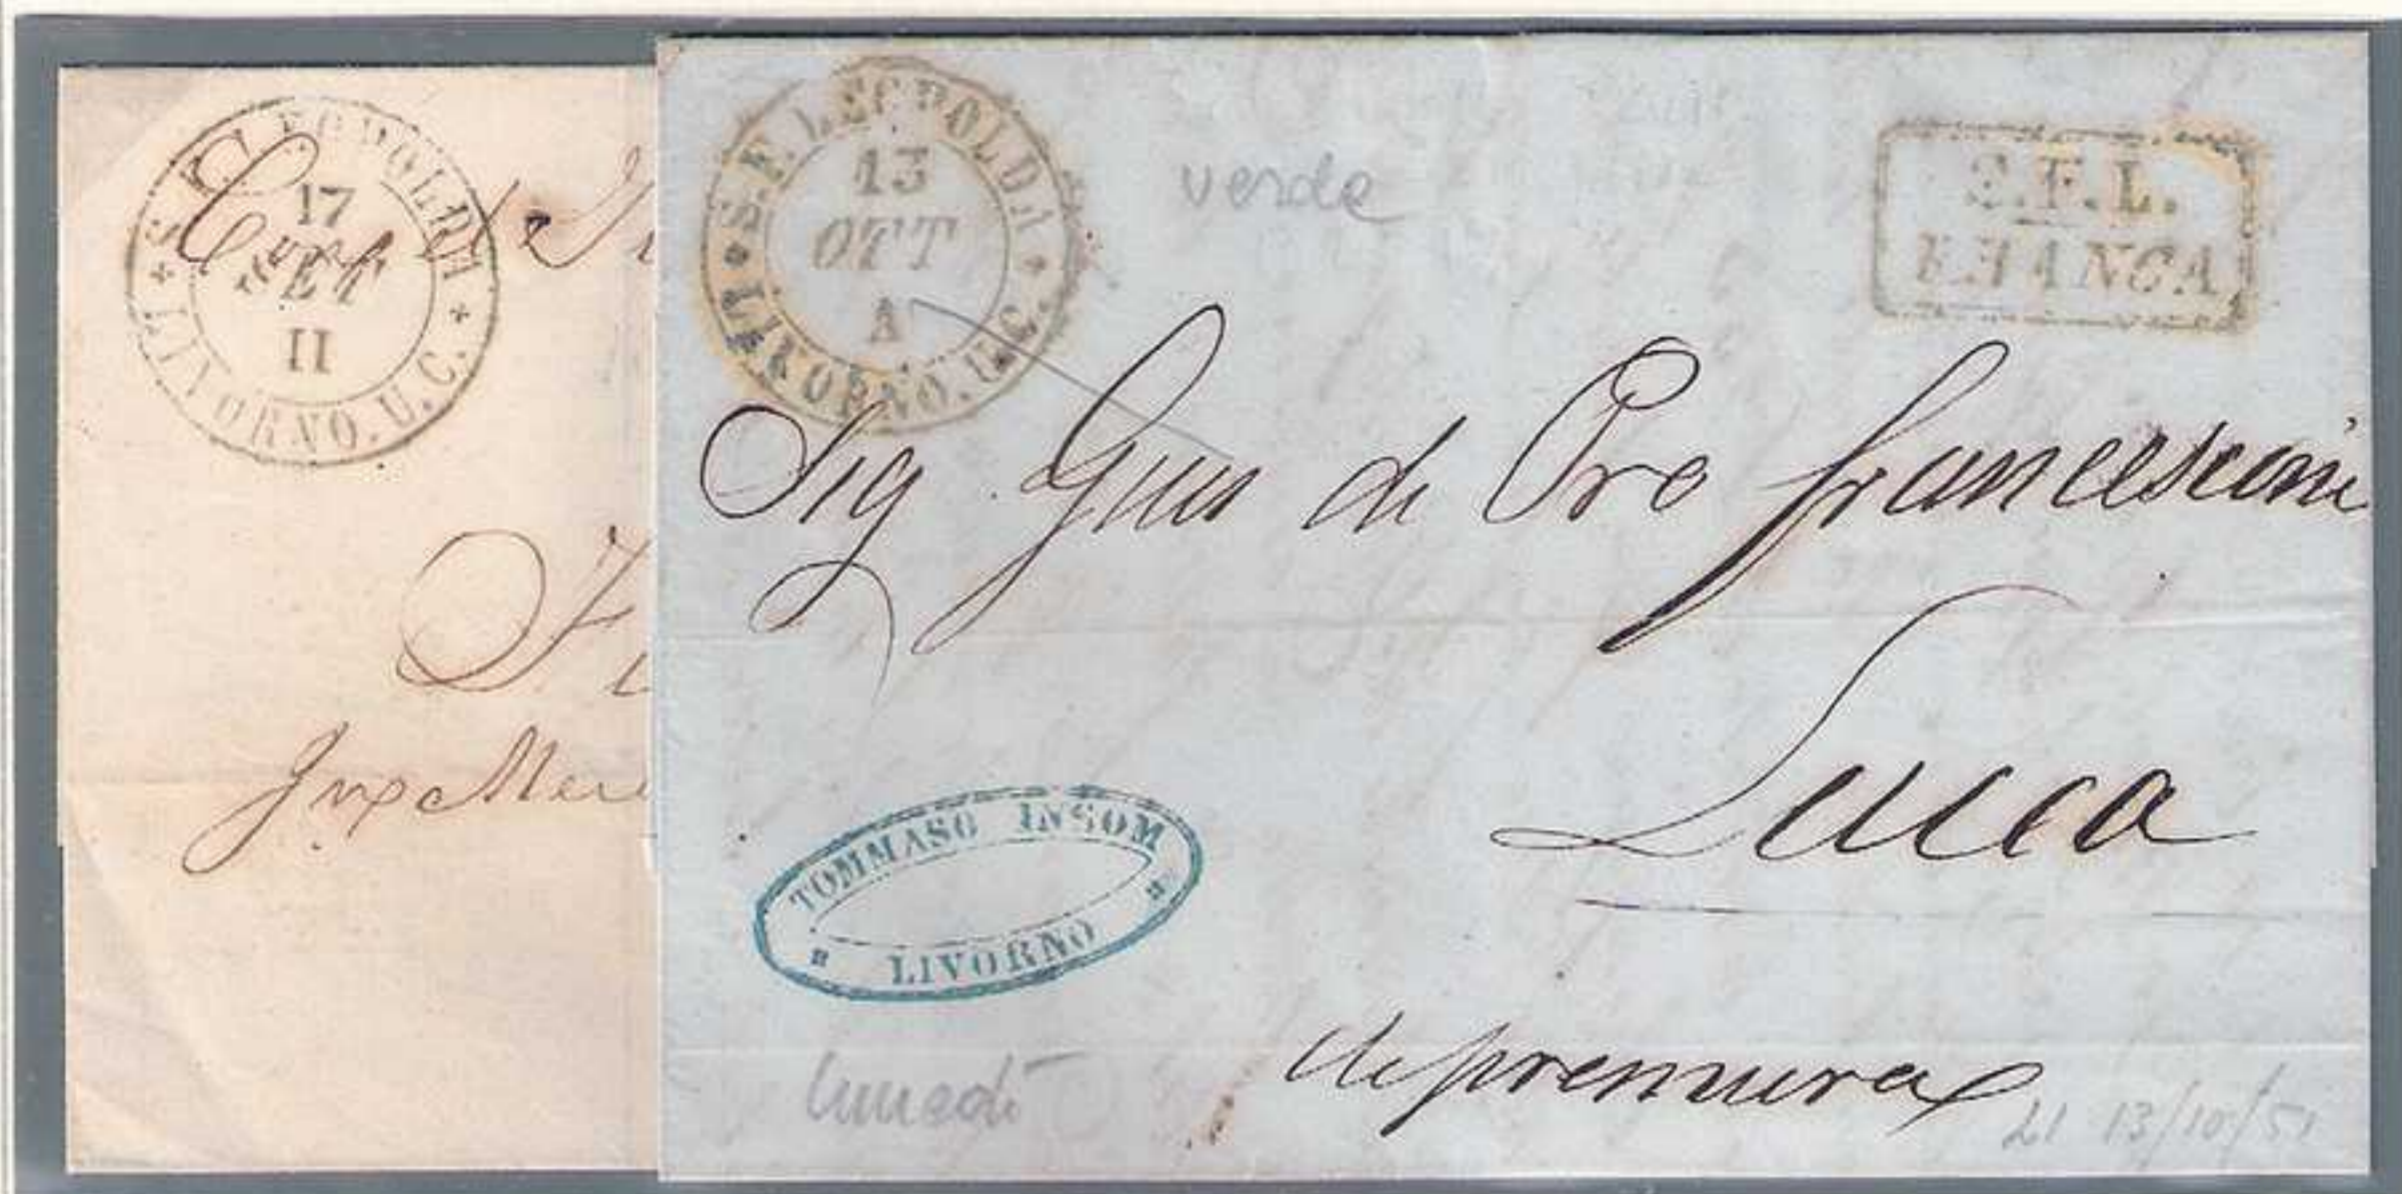 S.F. LEOPOLDA
17
SET
II
LIVORNO. U.C.
S.F. LEOPOLDA
13
OTT
A
LIVORNO. U.C.
verde
S.F.L.
FRANCA
Sig di Pro Francesconi
Lucca
TOMMASO INSOM
LIVORNO
di premura
lunedi
13/10/51